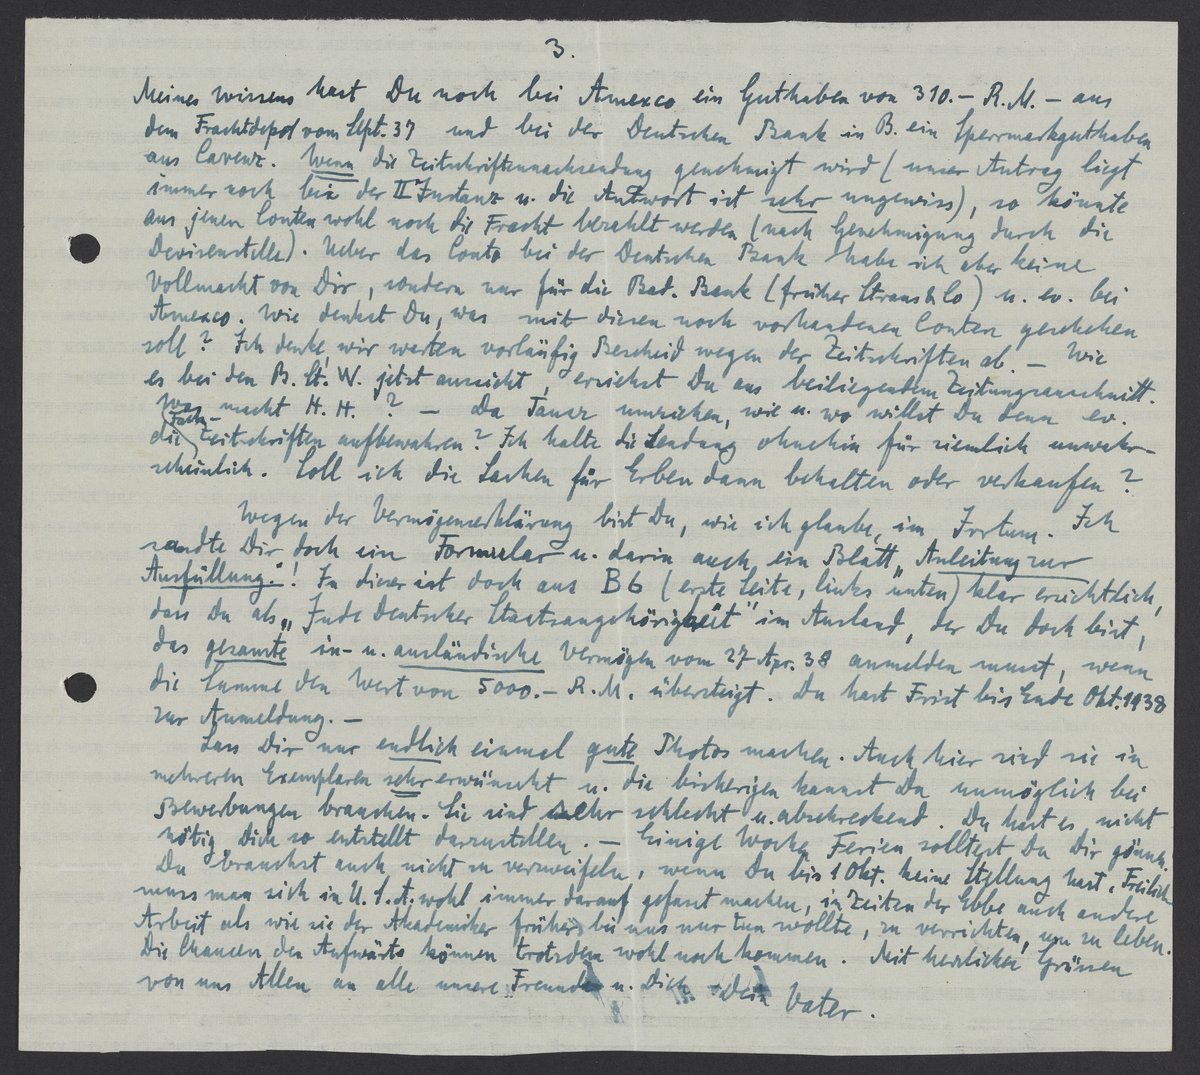 3.
Meines Wissens hast Du noch bei Amexco ein Guthaben von 310.– R.M. – aus
dem Frachtdepot vom Sept. 37 und bei der Deutschen Bank in B. ein Sperrmarkguthaben
aus Cavenz. Wenn die Zeitschriftennachsendung genehmigt wird (unser Antrag liegt
immer noch bei der II Instanz u. die Antwort ist sehr ungewiss), so könnte
aus jenen Conten wohl noch die Fracht bezahlt werden (nach Genehmigung durch die
Devisenstelle). Ueber das Conto bei der Deutschen Bank habe ich aber keine
Vollmacht von Dir, sondern nur für die Bad. Bank (früher Straus & Co) u. ev. bei
Amexco. Wie denkst Du, was mit diesen noch vorhandenen Conten geschehen
soll? Ich denke, wir warten vorläufig Bescheid wegen der Zeitschriften ab. – Wie
es bei den B. St. W. jetzt aussieht, ersiehst Du aus beiliegendem Zeitungsausschnitt.
Was macht H. H. ? – Da Tanaz umziehen, wie u. wo willst Du denn ev.
die Fach-Zeitschriften aufbewahren? Ich halte die Sendung ohnehin für ziemlich unwahr-
scheinlich. Soll ich die Sachen für Erben dann behalten oder verkaufen?
Wegen der Vermögenserklärung bist Du, wie ich glaube, im Irrtum. Ich
sandte Dir doch ein Formular u. darin auch ein Blatt „Anleitung zur
Ausfüllung."! In dieser ist doch aus B6 (erste Seite, links unten) klar ersichtlich,
dass Du als „Jude deutscher Staatsangehörigkeit" im Ausland, der Du doch bist,
das gesamte in- u. ausländische Vermögen vom 27 Apr. 38 anmelden musst, wenn
die Summe den Wert von 5000.– R.M. übersteigt. Du hast Frist bis Ende Okt. 1938
zur Anmeldung. –
Lass Dir nur endlich einmal gute Photos machen. Auch hier sind sie in
mehreren Exemplaren sehr erwünscht u. die bisherigen kannst Du unmöglich bei
Bewerbungen brauchen. Sie sind sehr schlecht u. abschreckend. Du hast es nicht
nötig, Dich so entstellt darzustellen. – Einige Woche Ferien solltest Du Dir gönnen.
Du brauchst auch nicht zu verzweifeln, wenn Du bis 1 Okt. keine Stellung hast. Freilich
muss man sich in U.S.A. wohl immer darauf gefasst machen, in Zeiten der Ebbe auch andere
Arbeit als wie sie der Akademiker früher bei uns nur tun wollte, zu verrichten, um zu leben.
Die Chancen des Aufwärts können trotzdem wohl noch kommen. Mit herzlichen Grüssen
von uns Allen an alle unsere Freunde u. Dich Dein Vater.